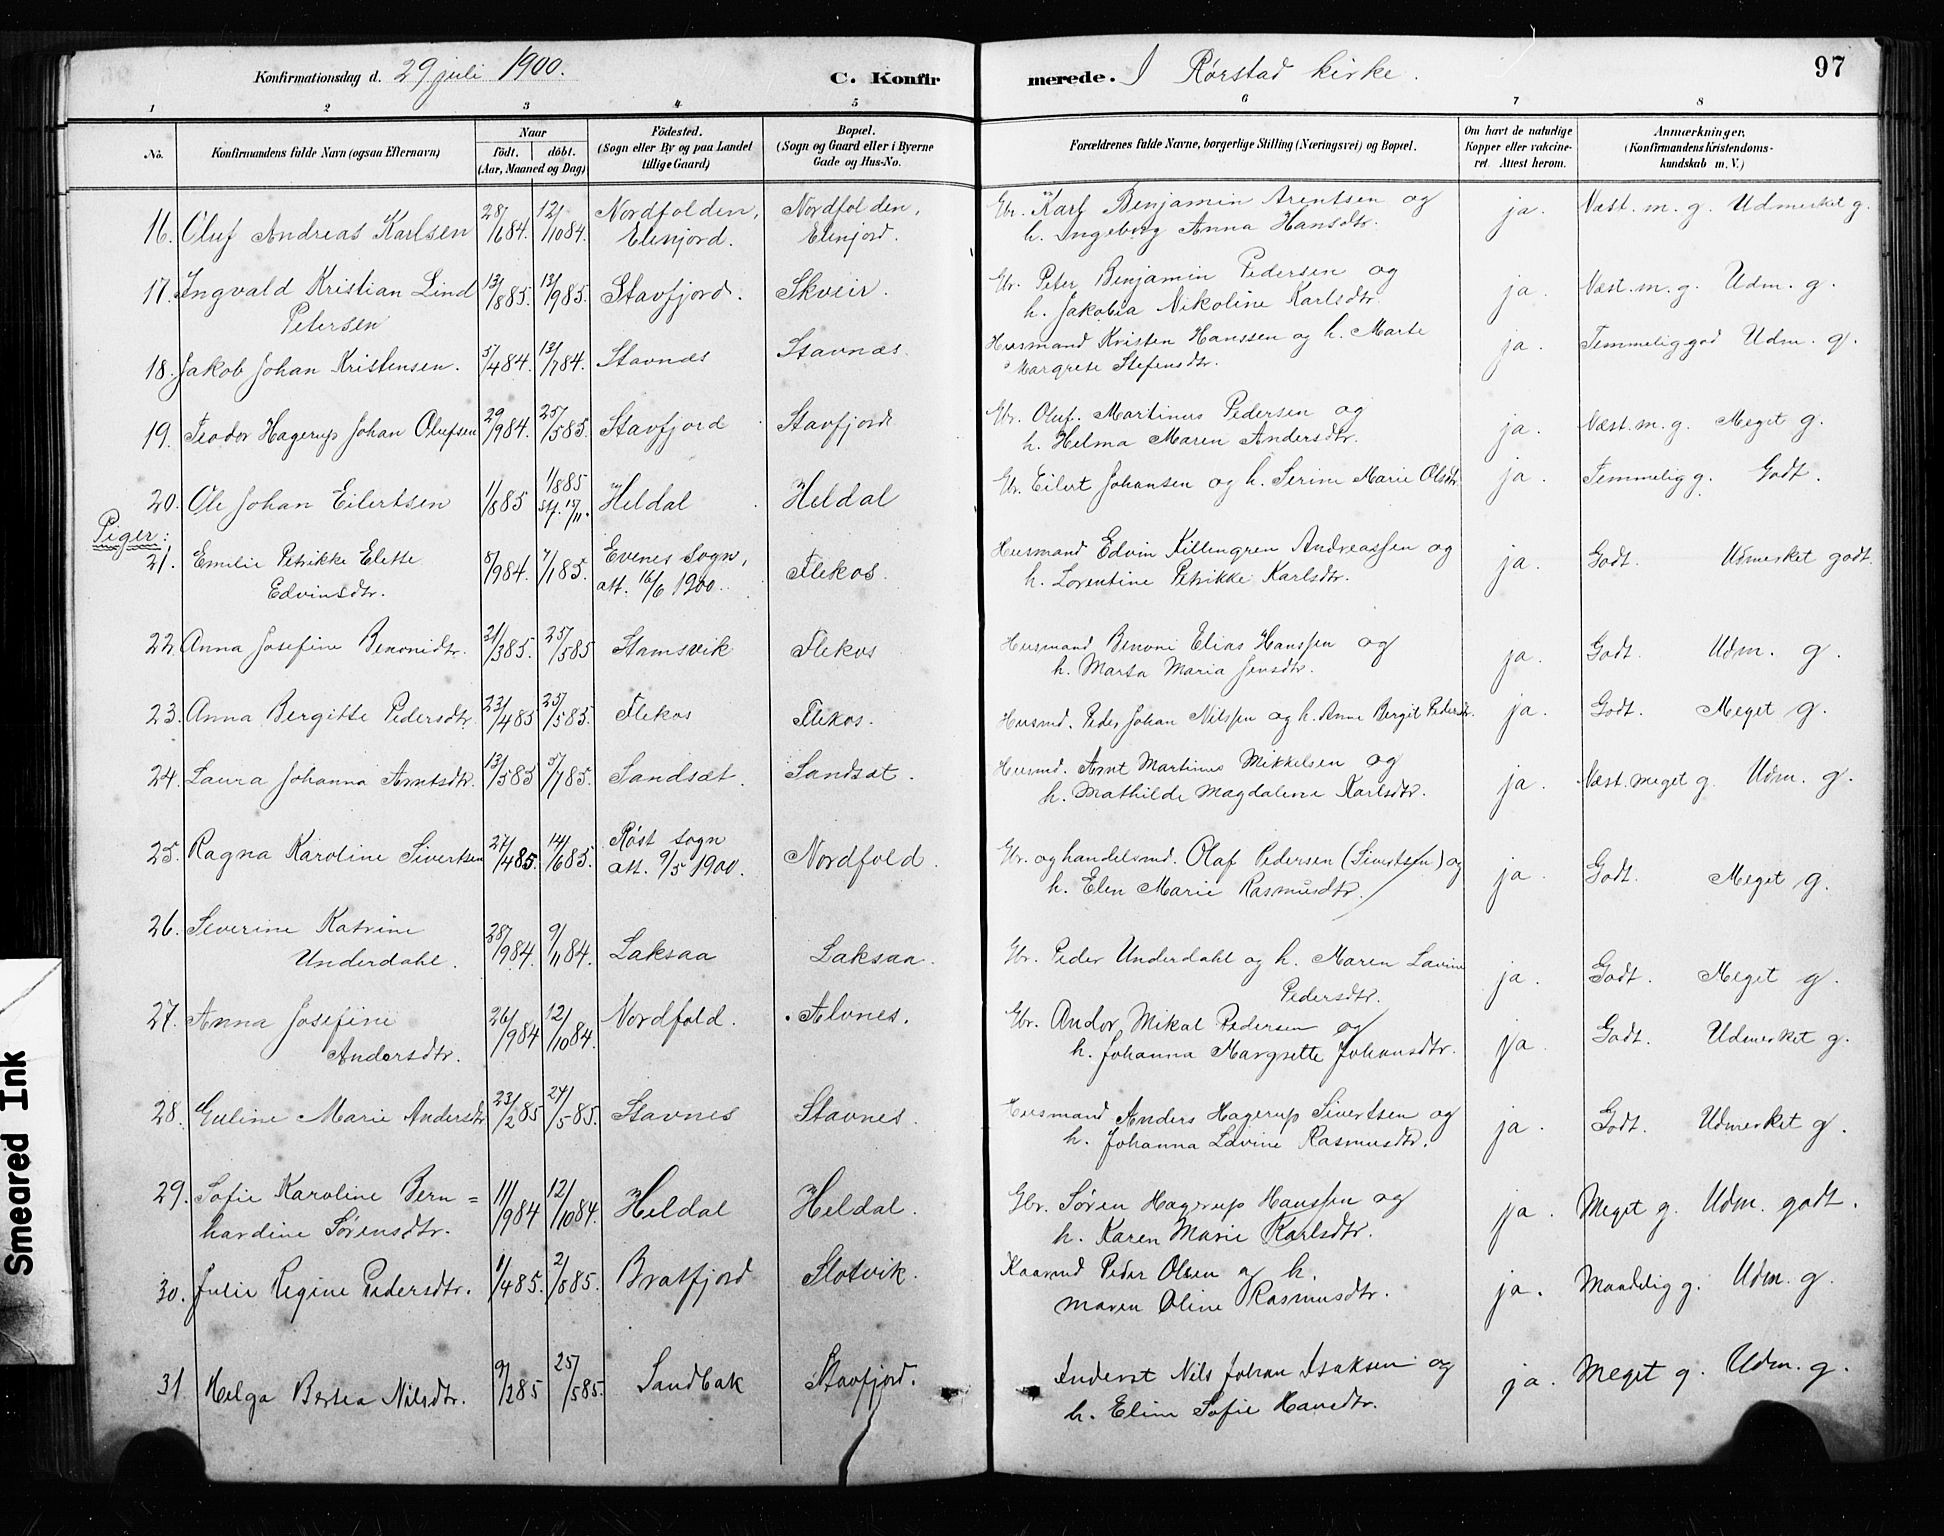 Konfirmationsdag d. 29 juli 1900. C. Konfirmerede. I Rørstad kirke. 97
1 2 3 4 5 6 7 8
No. Konfirmandens fulde Navn (ogsaa Efternavn) Naar født. døbt. (Aar, Maaned og Dag) Fødested. (Sogn eller By og paa Landet tillige Gaard) Bopæl. (Sogn og Gaard eller i Byerne Gade og Hus-No. Forældrenes fulde Navne, borgerlige Stilling (Næringsvei) og Bopæl. Om havt de naturlige Kopper eller vakcineret. Attest herom. Anmærkninger, (Konfirmandens Kristendomskundskab m. V.)
16. Oluf Andreas Karlsen 28/684. 12/1084. Nordfolden, Elenjord. Nordfolden, Elenjord. Gbr. Karl Benjamin Arentsen og
h. Ingeborg Anna Hansdtr. ja. Næst. m. g. Udmerket g.
17. Ingvald Kristian Lind
Petersen 13/885. 13/985. Stavfjord. Skveir. Gbr. Peter Benjamin Pedersen og
h. Jakobia Nikoline Karlsdtr. ja. Næst. m. g. Udm. g.
18. Jakob Johan Kristensen. 5/484. 13/784. Stavnæs Stavnæs. Husmand Kristen Hanssen og h. Marte
Margrete Stefensdtr. ja. Temmelig god Udm. g.
19. Teodor Hagerup Johan Olufsen 29/984. 25/585. Stavfjord Stavfjord Gbr. Oluf Martinus Pedersen og
h. Helma Maren Andersdtr. ja. Næst. m. g. Meget g.
20. Ole Johan Eilertsen 1/885 1/885 Heldal Heldal Gbr. Eilert Johansen og h. Serine Marie Olsdtr. ja. Temmelig g. Godt.
Piger:
21. Emilie Petrikke Elette
Edvinsdtr. 8/984. 7/185. Evenes Sogn,
att. 16/6 1900. Flekos. Husmand Edvin Killengren Andreassen og
h. Lorentine Petrikke Karlsdtr. ja. Godt. Udmerket godt.
22. Anna Josefine Benonidtr. 21/385. 25/585 Stamsvik Flekos Husmand Benoni Elias Hanssen og
h. Marta Maria Jensdtr. ja. Godt. Udm. g.
23. Anna Bergitte Pedersdtr. 23/485 25/585. Flekos Flekos. Husmd. Peder Johan Nilssen og h. Anne Bergit Pedersdtr. ja. Godt. Meget g.
24. Laura Johanna Arntsdtr. 13/585 5/785. Sandsæt. Sandsæt. Husmd. Arnt Martinus Mikkelsen og
h. Mathilde Magdalena Karlsdtr. ja. Næst. meget g. Udm. g.
25. Ragna Karoline Sivertsen 27/485. 14/685. Røst sogn
att. 9/5 1900. Nordfold. Gbr. og handelsmd. Olaf Pedersen (Sivertsen) og
h. Elen Marie Rasmusdtr. ja. Godt. Meget g.
26. Severine Katrine
Underdahl. 28/984. 9/1184. Laksaa Laksaa. Gbr. Peder Underdahl og h. Maren Lavine
Pedersdtr. ja. Godt. Meget g.
27. Anna Josefine
Andersdtr. 26/984 12/1084. Nordfold. Alvnes. Gbr. Andor Mikal Pedersen og
h. Johanna Margrette Johansdtr. ja. Godt. Udmerket g.
28. Guline Marie Andersdtr 23/285 24/585. Stavnes Stavnes. Husmand Anders Hagerup Sivertsen og
h. Johanna Lavine Rasmusdtr. ja. Godt. Udmerket g.
29. Sofie Karoline Bern=
hardine Sørensdtr. 11/984 12/1084. Heldal Heldal. Gbr. Søren Hagerup Hanssen og
h. Karen Marie Karlsdtr. ja. Meget g. Udm. godt.
30. Julie Regine Pedersdtr. 1/485. 2/885. Bratfjord Slotvik. Kaarmd Peder Olsen og h.
Maren Oline Rasmusdtr. ja. Maadelig g. Udm. g.
31 Helga Bertea Nilsdtr. 9/285 25/585. Sandbak Stavfjord. Inderst Nils Johan Isaksen og
h. Eline Sofie Hansdtr. ja. Meget g. Udm. g.
Smeared Ink